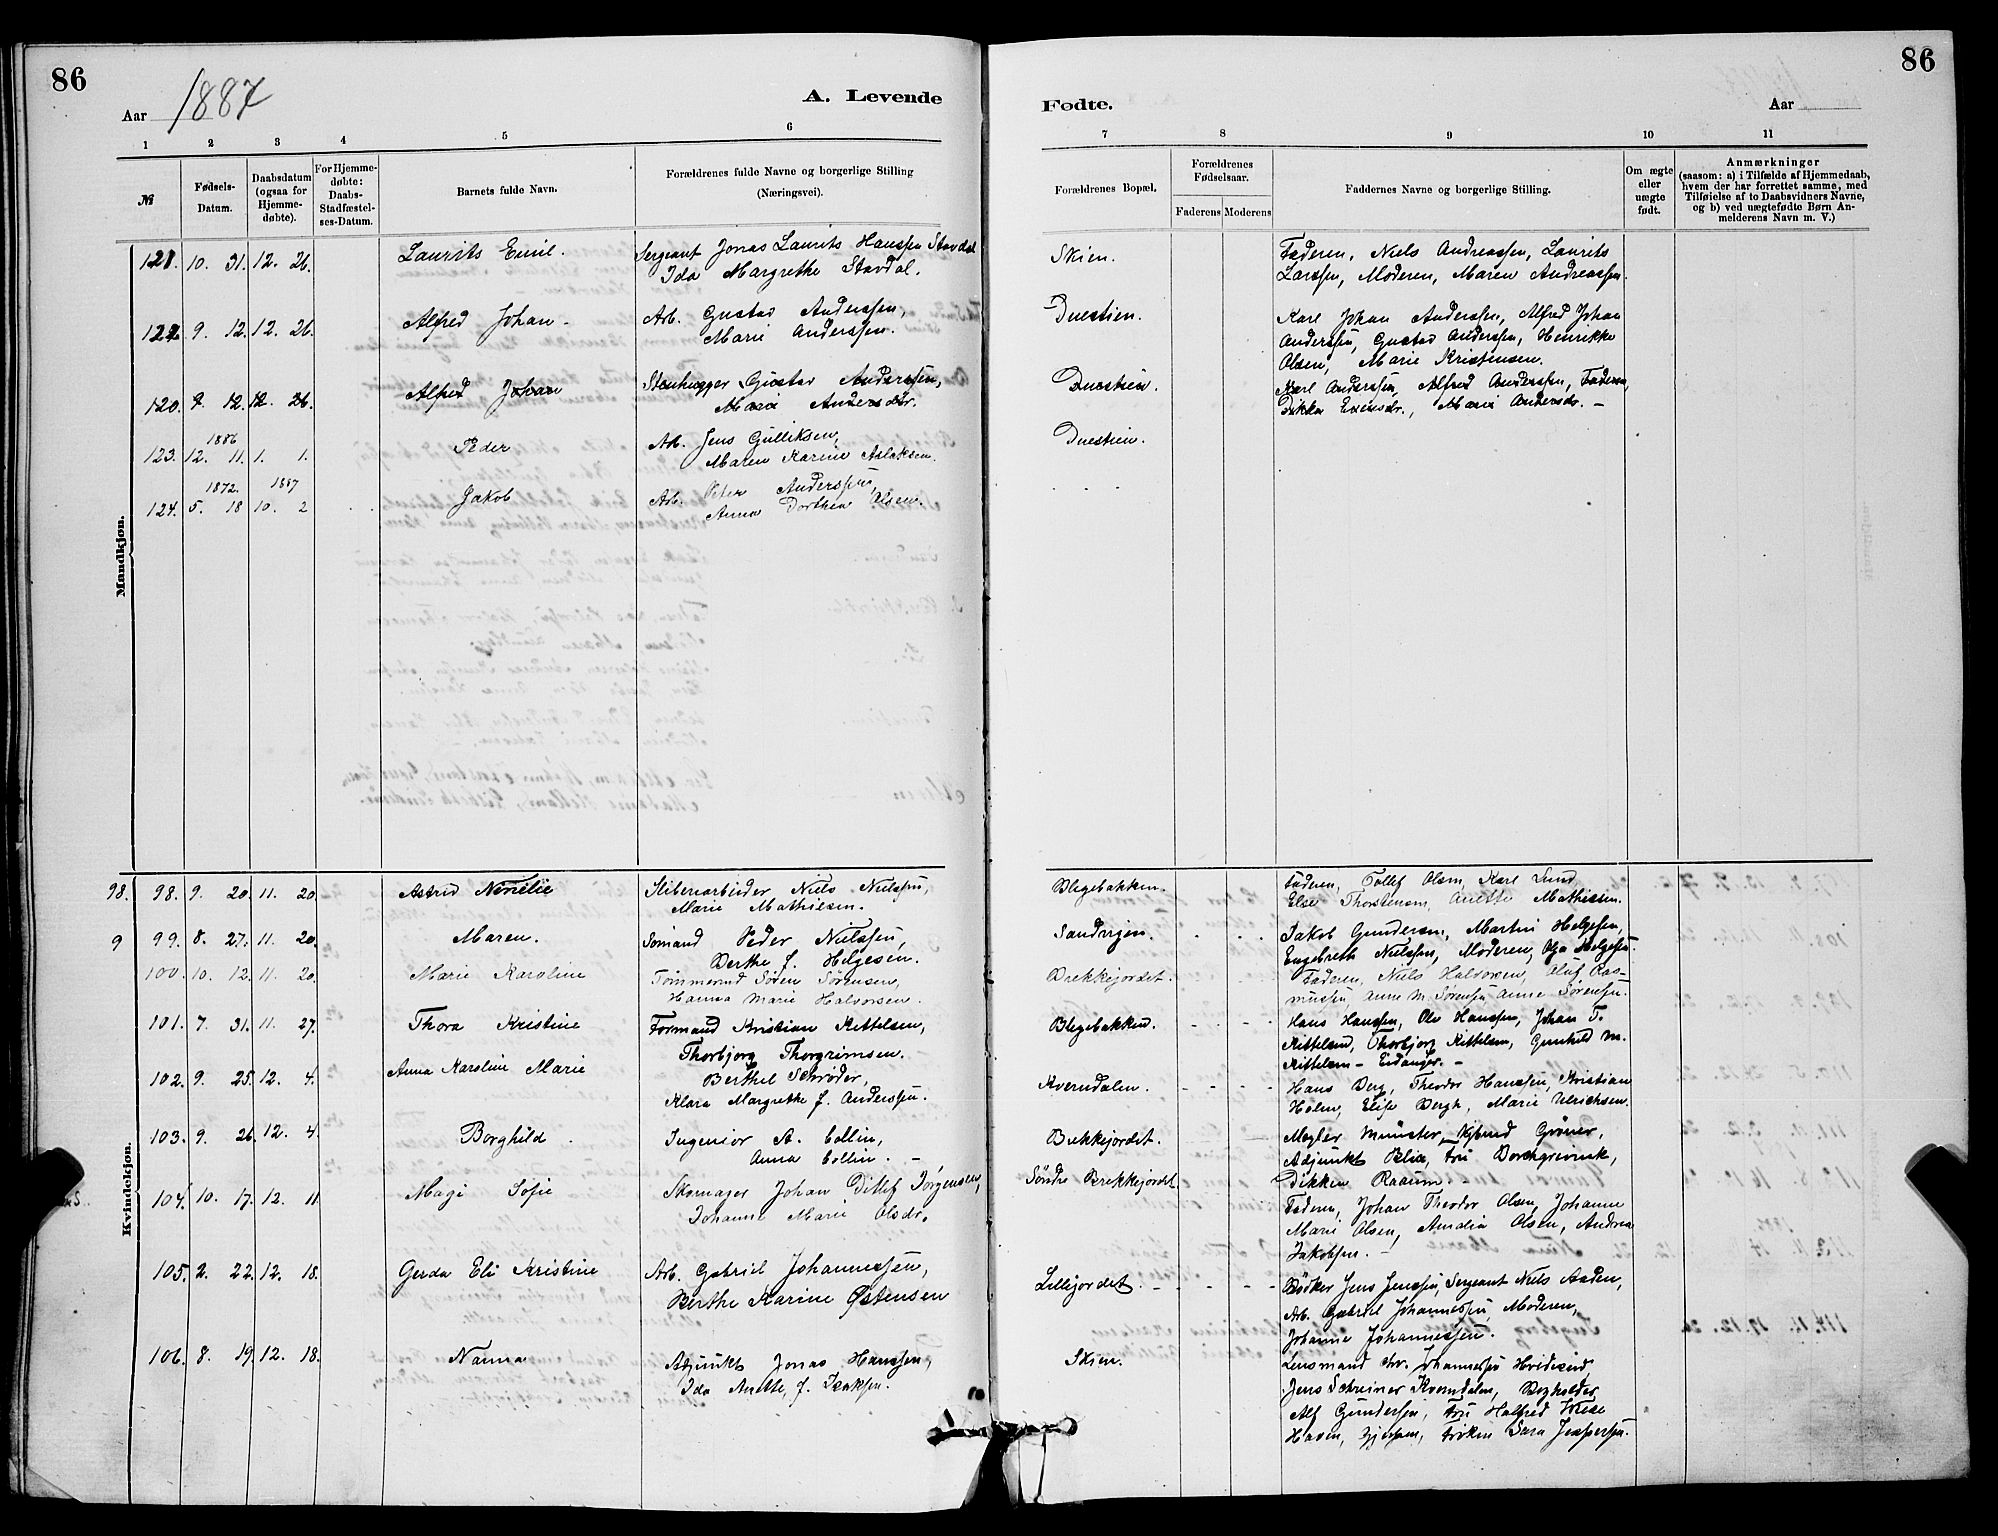 86
Aar 1887
A. Levende
Fødte.
Aar
86
1 2 3 4 5 6 7 8 9 10 11
№
Fødsels-Datum.
Daabsdatum (ogsaa for Hjemmedøbte).
For Hjemmedøbte: Daabs-Stadfæstelses-Datum.
Barnets fulde Navn.
Forældrenes fulde Navne og borgerlige Stilling (Næringsvei).
Forældrenes Bopæl.
Forældrenes Fødselsaar.
Faderens Moderens
Faddernes Navne og borgerlige Stilling.
Om ægte eller uægte født.
Anmærkninger
(saasom: a) i Tilfælde af Hjemmedaab, hvem der har forrettet samme, med Tilføielse af to Daabsvidners Navne, og b) ved uægtefødte Børn Anmelderens Navn m. V.)
Mandkjøn.
121. 10. 31. 12. 26. Laurits Emil. Sergeant Jonas Laurits Hanssen Stavdal Skien. Faderen, Niels Andreassen, Laurits
Ida Margrethe Stavdal. Larssen, Moderen, Maren Andreassen.
122. 9. 12. 12. 26. Alfred Johan Arb. Gustav Anderssen, Duestien. Karl Johan Anderssen, Alfred Johan
Marie Anderssen. Anderssen, Gustav Anderssen, Henrikke
Olsen, Marie Kristensen.
120. 9. 12. 12. 26. Alfred Johan Stenhugger Gustav Anderssen, Duestien. Karl Anderssen, Alfred Anderssen, Faderen,
Marie Andersdtr. Dikka Evensdr., Marie Andersdr. –
1886
123. 12. 11. 1. 1. Peder Arb. Jens Gulliksen, Duestien.
Maren Karine Aslaksen.
1872. 1887
124. 5. 18 10. 2 Jakob Arb. Peter Anderssen,
Anna Dorthea Olsen.
Kvindekjøn.
98. 98. 9. 20. 11. 20. Astrid Sliberiarbeider Niels Nielssen, Blegebakken. Faderen, Tollef Olsen, Karl Lund
Marie Mathiesen. Else Thorstensen, Anette Mathissen.
9 99. 8. 27. 11. 20. Maren. Sømand Peder Nielssen, Sandvigen. Jakob Gundersen, Martin Helgesen,
Berthe f. Helgesen. Engebreth Nielssen, Moderen, Olga Helgesen.
100. 10. 12. 11. 20. Marie Karoline Tømmermd Søren Sørensen, Brekkejordet. Faderen, Niels Halvorsen, Oluf Ras-
Hanna Marie Halvorsen. mussen, Anne M. Sørensen, Anne Sørensen.
101. 7. 31. 11. 27. Thora Kristine Formand Kristian Kittelsen, Blegebakken. Hans Hanssen, Ole Hanssen, Johan T.
Thorbjørg Thorgrimsen. Kittelsen, Thorbjørg Kittelsen, Gunhild M.
Kittelsen – Eidanger. –
102. 9. 25. 12. 4. Anna Karoline Marie Berthel Schrøder, Kverndalen. Hans Berg, Theodor Hanssen, Kristian
Klara Margrethe f. Anderssen. Holm, Elise Bergh, Marie Ulrichsen.
103. 9. 26. 12. 4. Borghild. Ingeniør A. Collin, Brekkejordet. Megler Münster, Grøner,
Anna Collin. – Adjunkt Blix, Fru Borchgrevink,
Frøken Raaum. –
104. 10. 17. 12. 11. Magi Sofie Skomager Johan Ditlef Jørgensen, Søndre Brekkejordet. Faderen, Johan Theodor Olsen, Johanne
Johanne Marie Olsdr. Marie Olsen, Amalia Olsen, Andrea
Jakobsen. –
105. 2. 22. 12. 18. Gerda Eli Kristine Arb. Gabriel Johannessen, Lillejordet. Bødker Jens Jenssen, Sergeant Niels Aasden,
Berthe Karine Østensen Arb. Gabriel Johannessen, Moderen,
Johanne Johannessen.
106. 8. 19. 12. 18. Nanna Adjunkt Jonas Hanssen, Skien. Lensmand Chr. Johannessen
Ida Anette, f. Isaksen. Jens Schreiner Kverndalen, Bogholder
Alf Gunderssen, Fru Halfred Wiese
Haven, Gjerpen, Frøken Sara Jespersen.